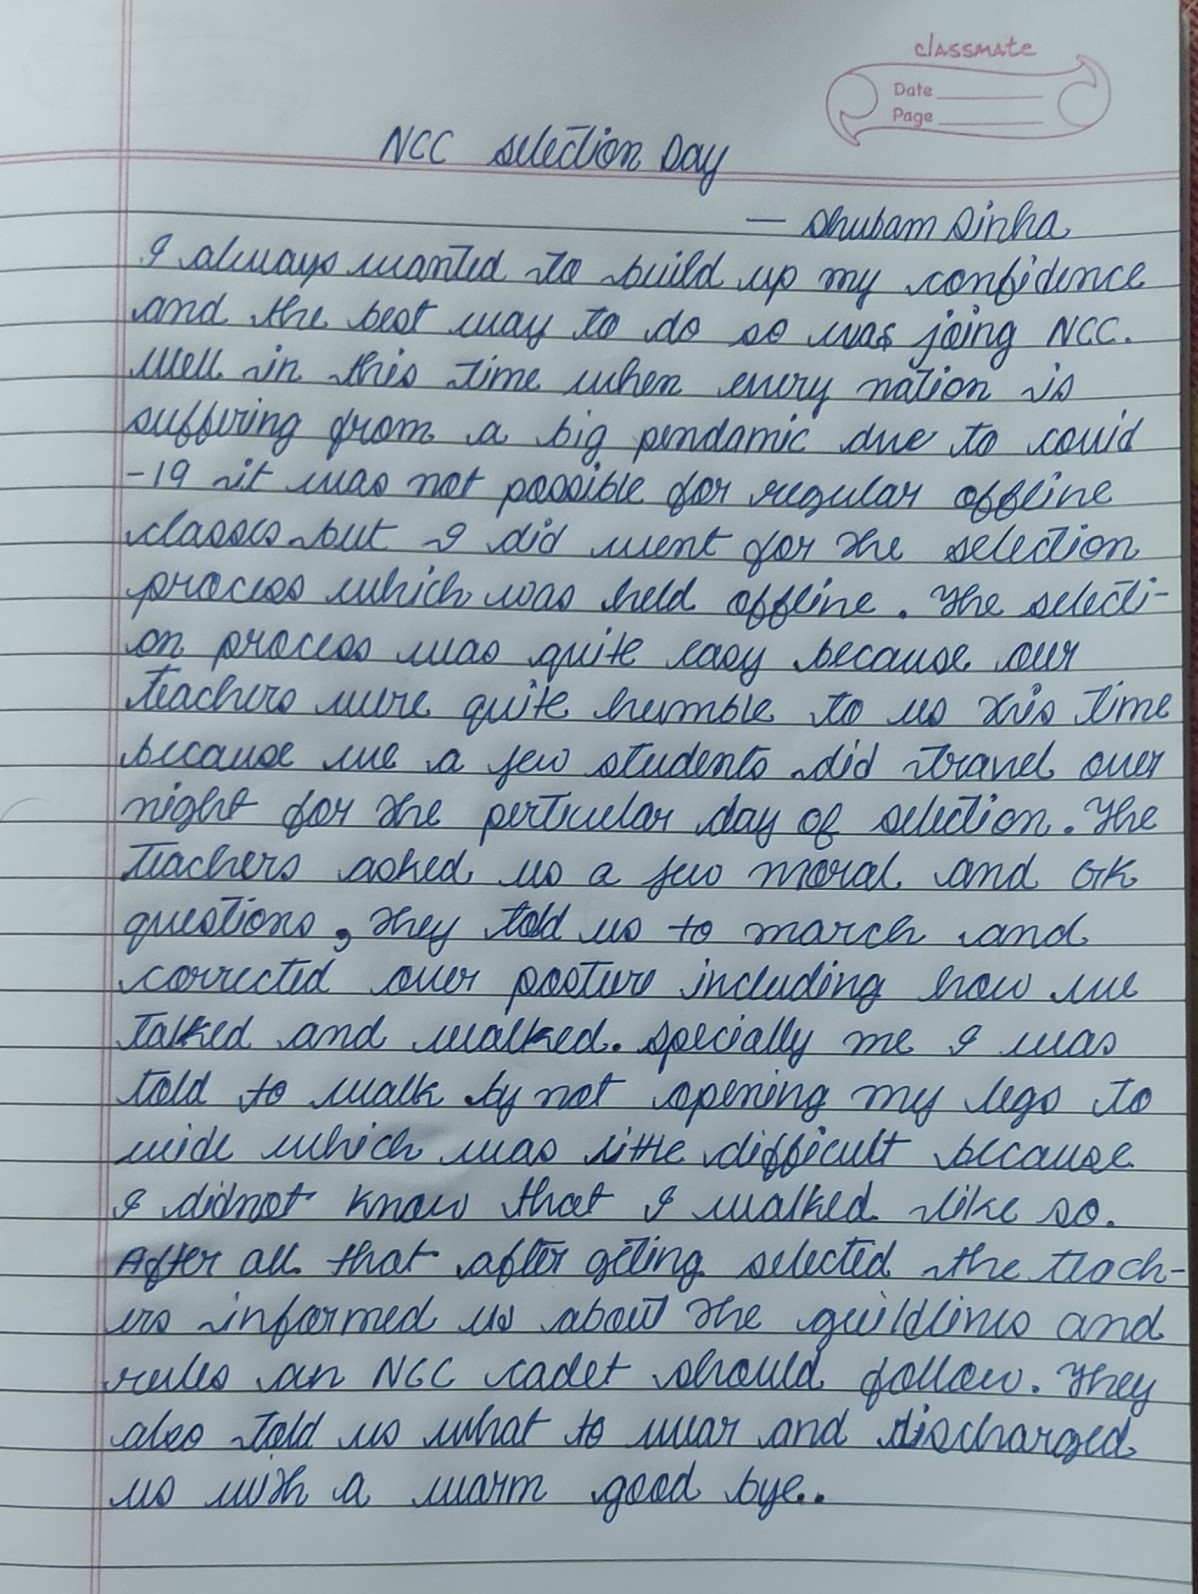 classmate
Date
Page
NCC selection Day
— Shubam Sinha
I always wanted to build up my confidence
and the best way to do so was joing NCC.
Well in this time when every nation is
suffering from a big pendamic due to covid
-19 it was not possible for regular offline
classes but I did went for the selection
process which was held offline. The selecti-
on process was quite easy because our
teachers were quite humble to us this time
because we a few students did travel over
night for the perticular day of selection. The
teachers asked us a few moral and GK
questions, they told us to march and
corrected over posture including how we
talked and walked. specially me I was
told to walk by not opening my legs to
wide which was little difficult because
I didnot know that I walked like so.
After all that after geting selected the teach-
ers informed us about the guildlines and
rules an NCC cadet should follow. They
also told us what to wear and discharged
us with a warm good bye..